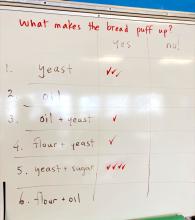 What makes the bread puff up?
yes no!
1. yeast ✓✓✓
2. oil
3. oil + yeast ✓
4. flour + yeast ✓
5. yeast + sugar ✓✓✓✓
6. flour + oil